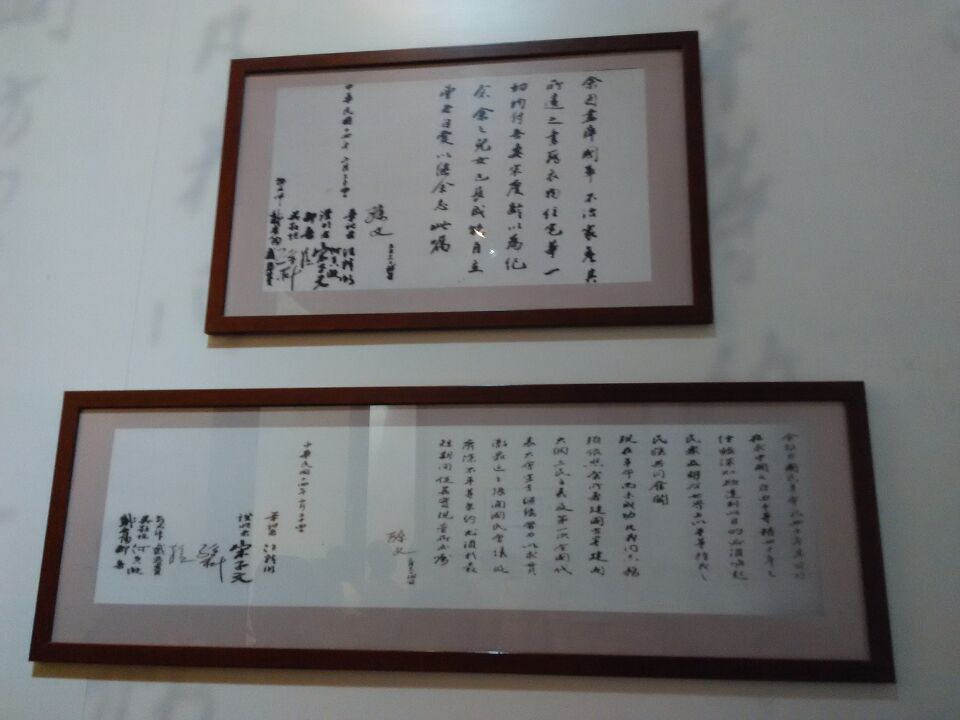 余因盡瘁國事不治家產其
所遺之書籍衣物住宅等一
切均付吾妻宋慶齡以為紀
念余之兒女已長成能自立
望各自愛以繼余志此囑
孫文
中華民國十四年二月二十四日
筆記者 汪精衛
證明者 宋子文
何香凝
鄒魯
孫科
吳敬恆
戴恩賽
余致力國民革命凡四十年其目的
在求中國之自由平等積四十年之
經驗深知欲達到此目的必須喚起
民眾及聯合世界上以平等待我之
民族共同奮鬥
現在革命尚未成功凡我同志務
須依照余所著建國方略建國
大綱三民主義及第一次全國代
表大會宣言繼續努力以求貫
徹最近主張開國民會議及
廢除不平等條約尤須於最
短期間促其實現是所至囑
孫文
中華民國十四年二月二十四日
筆記者 汪精衛
證明者 宋子文
孫科
戴恩賽
吳敬恆 何香凝
鄒魯